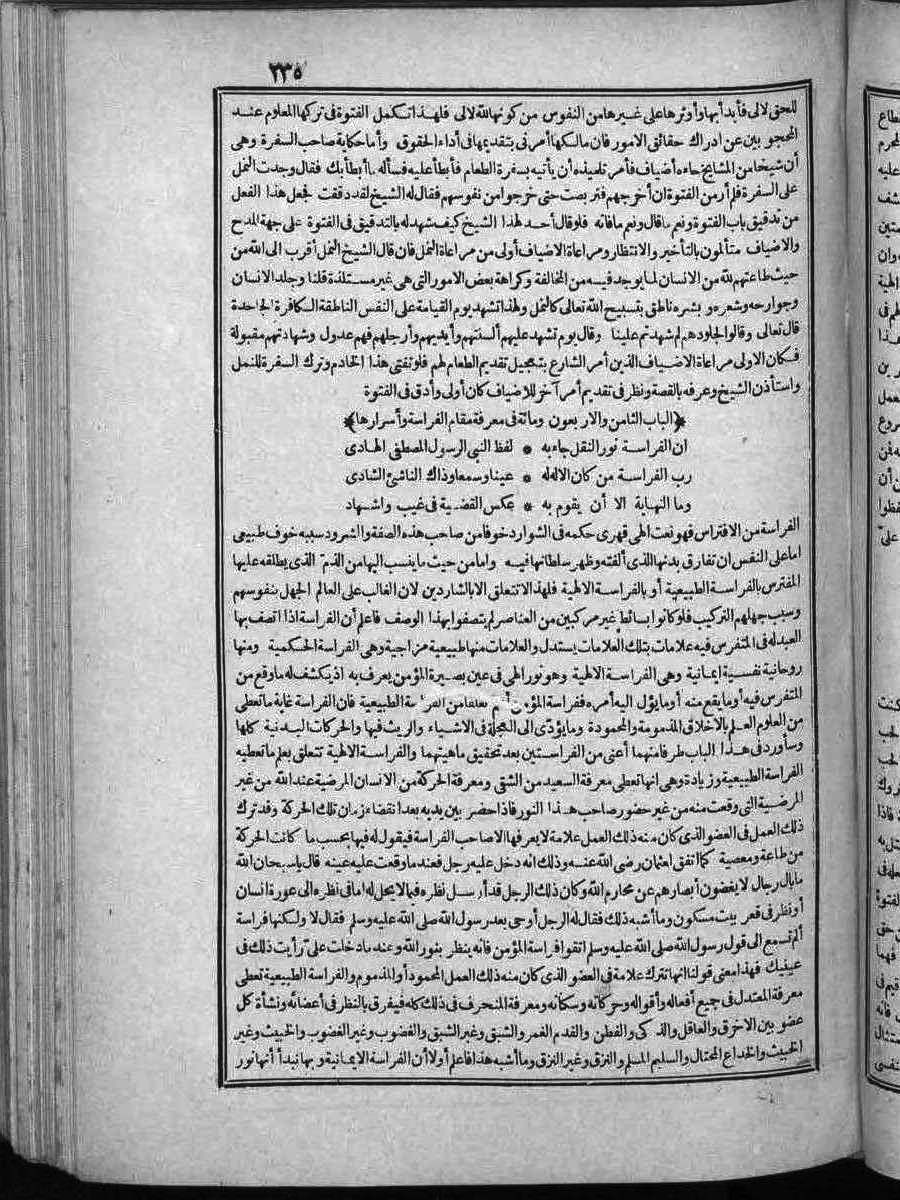 ٢٣٥
للحق لا لى فأبدأ بها وأوثرها على غيرها من النفوس من كونها لله لا لى فلهذا تكمل الفتوة فى تركها المعلوم عند
المحجوبين عن ادراك حقائق الامور فان مالكها أمرنى بتقديمها فى أداء الحقوق وأما حكاية صاحب السفرة وهى
أن شيخا من المشايخ جاءه أضياف فأمر تلميذه أن يأتيه بسفرة الطعام فأبطأ عليه فسأله ما أبطأ بك فقال وجدت النمل
على السفرة فلم أر من الفتوة ان أخرجهم فتربصت حتى خرجوا من نفوسهم فقال له الشيخ لقد دققت فجعل هذا الفعل
من تدقيق باب الفتوة ونعم ما قال ونعم مافاته فلوقال أحد لهذا الشيخ كيف شهد له بالتدقيق فى الفتوة على جهة المدح
والاضياف متألمون بالتأخير والانتظار ومراعاة الاضياف أولى من مراعاة النمل فان قال الشيخ النمل أقرب الى الله من
حيث طاعتهم لله من الانسان لما يوجد فيه من المخالفة وكراهة بعض الامور التى هى غير مستلذة قلنا وجلد الانسان
وجوارحه وشعره وبشره ناطق بتسبيح الله تعالى كالنمل ولهذا تشهد يوم القيامة على النفس الناطقة الكافرة الجاحدة
قال تعالى وقالوا لجلودهم لم شهدتم علينا وقال يوم تشهد عليهم ألسنتهم وأيديهم وأرجلهم فهم عدول وشهادتهم مقبولة
فكان الاولى مراعاة الاضياف الذين أمر الشارع بتعجيل تقديم الطعام لهم فلو تفتى هذا الخادم وترك السفرة للنمل
واستأذن الشيخ وعرفه بالقصة ونظر فى تقديم أمر آخر للاضياف كان أولى وأدق فى الفتوة
﴿الباب الثامن والاربعون ومائة فى معرفة مقام الفراسة وأسرارها﴾
ان الفراسة نور النقل جاء به * لفظ النبى الرسول المصطفى الهادى
رب الفراسة من كان الاله له * عينا وسمعا وذاك الناشئ الشادى
وما النهاية الا أن يقوم به * عكس القضية فى غيب واشهاد
الفراسة من الافتراس فهو نعت الهى قهرى حكمه فى الشوارد خوفا من صاحب هذه الصفة والشرود سببه خوف طبيعى
اما على النفس ان تفارق بدنها الذى ألفته وظهر سلطانها فيه واما من حيث ما ينسب اليها من الذم الذى يطلقه عليها
المفترس بالفراسة الطبيعية أو بالفراسة الالهية فلهذا لا تتعلق الا بالشاردين لان الغالب على العالم الجهل بنفوسهم
وسبب جهلهم التركيب فلو كانوا بسائط غير مركبين من العناصر لم يتصفوا بهذا الوصف فاعلم أن الفراسة اذا اتصف بها
العبد له فى المتفرس فيه علامات بتلك العلامات يستدل والعلامات منها طبيعية مزاجية وهى الفراسة الحكمية ومنها
روحانية نفسية ايمانية وهى الفراسة الالهية وهو نور الهى فى عين بصيرة المؤمن يعرف به اذ يكشف له ما وقع من
المتفرس فيه أو ما يقع منه أو ما يؤل اليه أمره ففراسة المؤمن أعم تعلقا من الفراسة الطبيعية فان الفراسة غاية ما تعطى
من العلوم العلم بالاخلاق المذمومة والمحمودة وما يؤدى الى العجلة فى الاشياء والريث فيها والحركات البدنية كلها
وسأورد فى هذا الباب طرفا منهما أعنى من الفراستين بعد تحقيق ماهيتهما والفراسة الالهية تتعلق بعلم ما تعطيه
الفراسة الطبيعية وزيادة وهى انها تعطى معرفة السعيد من الشقى ومعرفة الحركة من الانسان المرضية عند الله من غير
المرضية التى وقعت منه من غير حضور صاحب هذا النور فاذا حضر بين يديه بعد انقضاء زمان تلك الحركة وقد ترك
ذلك العمل فى العضو الذى كان منه ذلك العمل علامة لا يعرفها الا صاحب الفراسة فيقول له فيها بحسب ما كانت الحركة
من طاعة ومعصية كما اتفق لعثمان رضى الله عنه وذلك انه دخل عليه رجل فعند ما وقعت عليه عينه قال يا سبحان الله
ما بال رجال لا يغضون أبصارهم عن محارم الله وكان ذلك الرجل قد أرسل نظره فيما لا يحل له اما فى نظره الى عورة انسان
أو نظر فى قعر بيت مسكون وما أشبه ذلك فقال له الرجل أوحى بعد رسول الله صلى الله عليه وسلم فقال لا ولكنها فراسة
ألم تسمع الى قول رسول الله صلى الله عليه وسلم اتقوا فراسة المؤمن فانه ينظر بنور الله وعند ما دخلت على رأيت ذلك فى
عينيك فهذا معنى قولنا انها تترك علامة فى العضو الذى كان منه ذلك العمل المحمود أو المذموم والفراسة الطبيعية تعطى
معرفة المعتدل فى جميع أفعاله وأقواله وحركاته وسكاته ومعرفة المنحرف فى ذلك كله فيفرق بالنظر فى أعضائه ونشأة كل
عضو بين الاخرق والعاقل والذكى والفطن والفدم الغمر والشبق وغير الشبق والغضوب وغير الغضوب والخبيث وغير
الخبيث والخداع المحتال والسليم المسلم والنزق وغير النزق وما أشبه هذا فاعلم أولا أن الفراسة الايمانية وبها نبدأ أنها نور